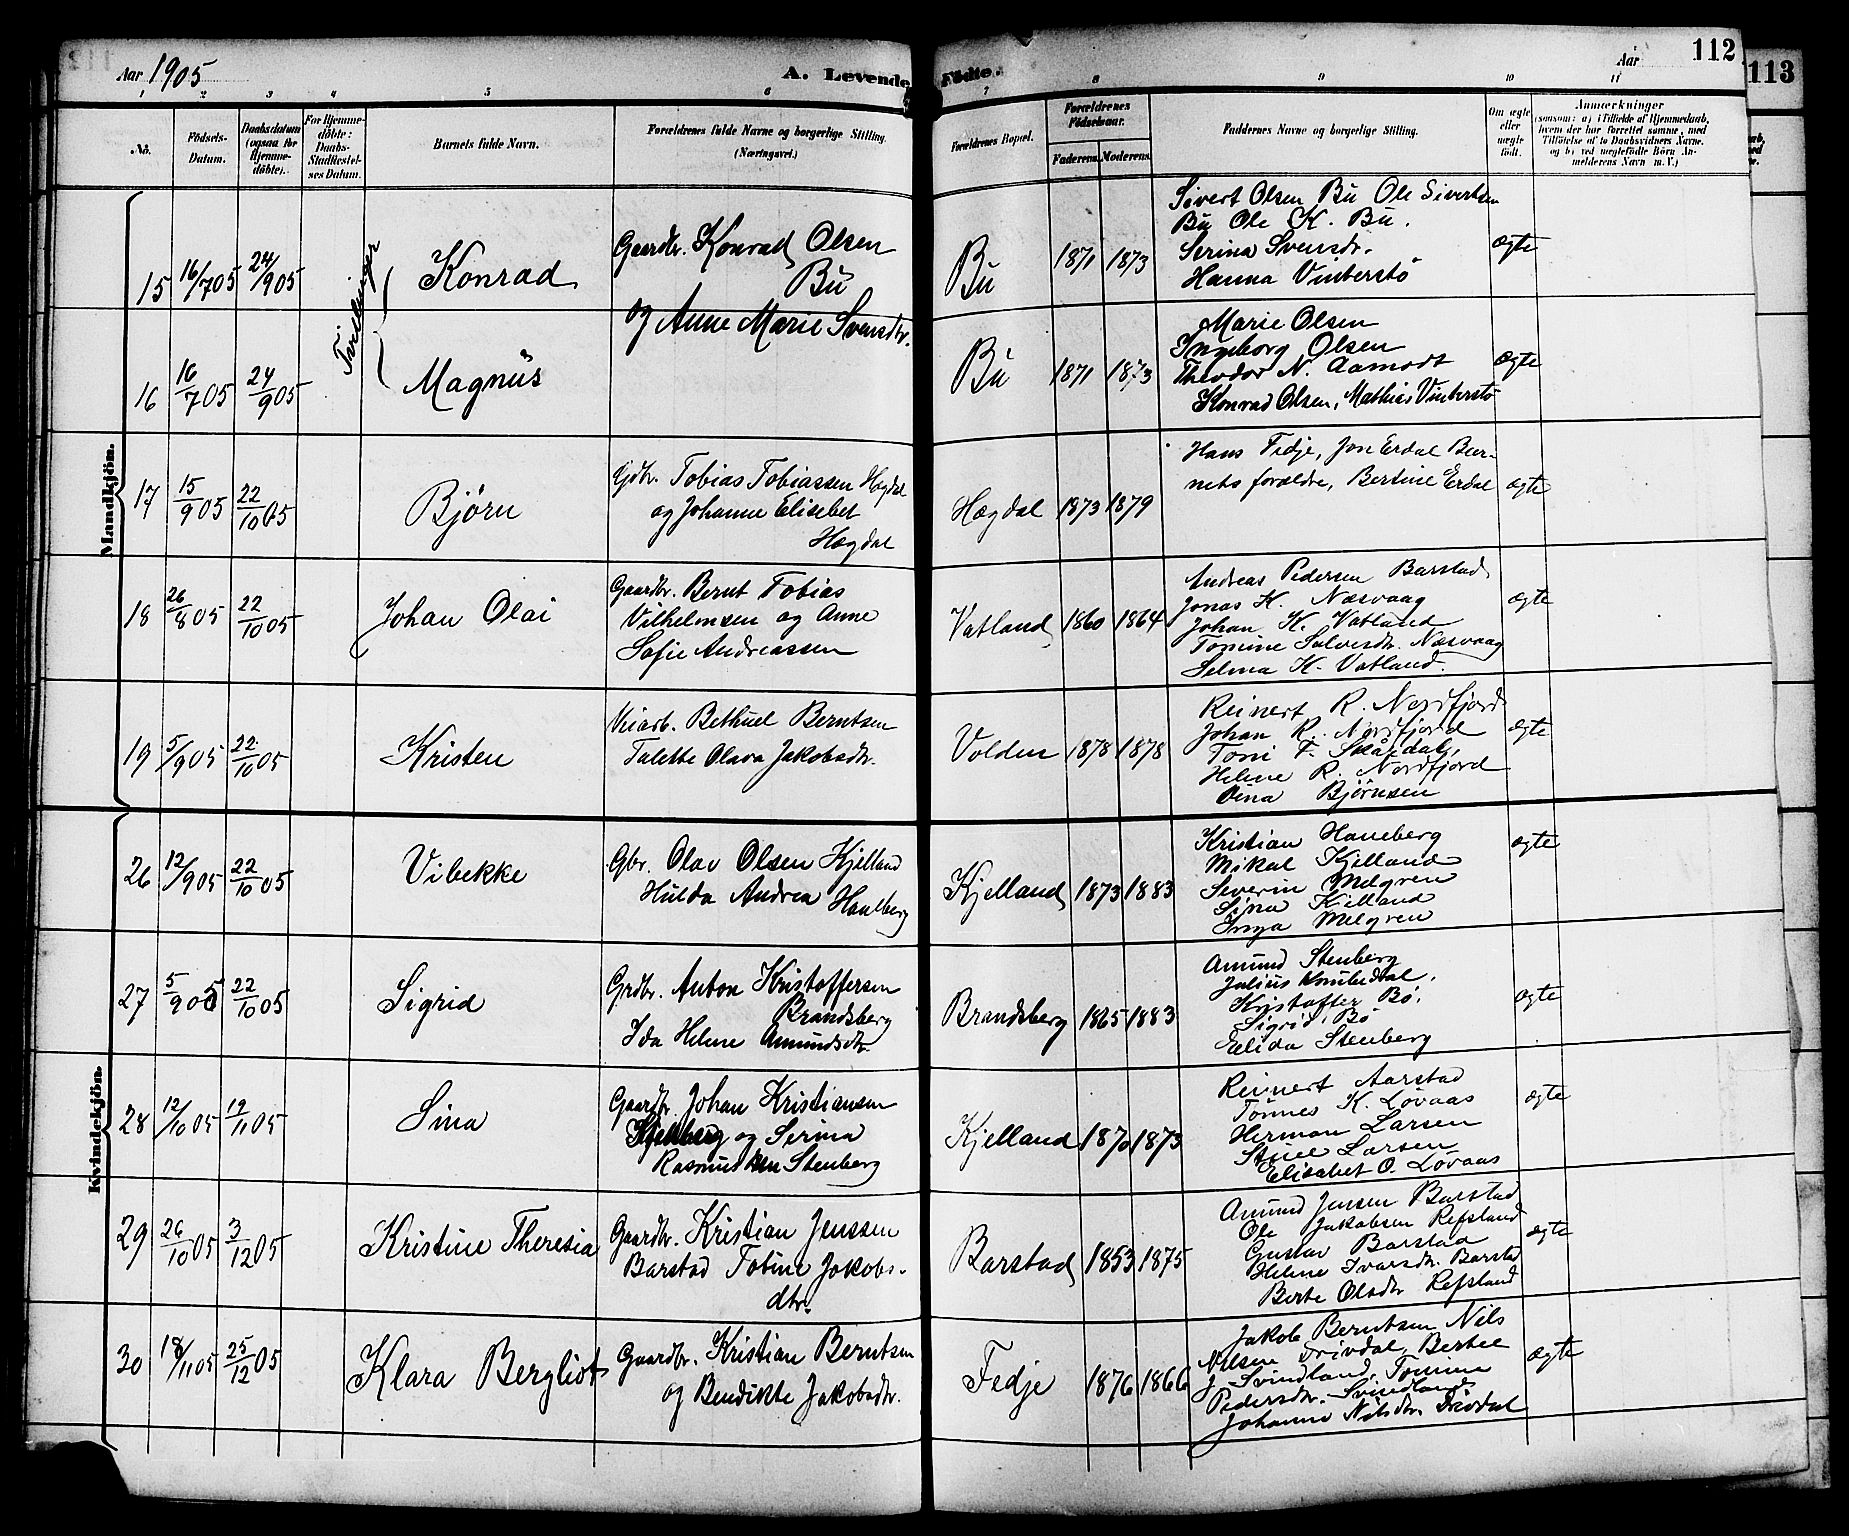 Aar 1905
A. Levende Fødte.
Aar
112
113
1 2 3 4 5 6 7 8 9 10 11
No.
Fødsels-
Datum.
Daabsdatum
(ogsaa for
Hjemme-
døbte).
For Hjemme-
døbte:
Daabs-
Stadfæstel-
ses Datum.
Barnets fulde Navn.
Forældrenes fulde Navne og borgerlige Stilling.
(Næringsvei.)
Forældrenes Bopæl.
Forældrenes
Fødselsaar.
Faderens. Moderens.
Faddernes Navne og borgerlige Stilling.
Om ægte
eller
uægte
født.
Anmærkninger
(saasom: a) i Tilfælde af Hjemmedaab,
hvem der har forrettet samme, med
Tilføielse af to Daabsvidners Navne.
og b) ved uægtefødte Børn An-
melderens Navn m. V.)
Mandkjøn.
15 16/7 05 24/9 05 Tvillinger Konrad
Gaardbr. Konrad Olsen
Bu
og Anne Marie Svensdtr.
Bu 1871 1873
Sivert Olsen Bu Ole Sivertsen
Bu Ole K. Bu.
Serina Svensdtr.
Hanna Vinterstø
ægte
16 16/7 05 24/9 05 Magnus
Bu 1871 1873
Marie Olsen
Ingeborg Olsen
Theodor N. Aamodt
Konrad Olsen, Mathias Vinterstø
ægte
17 15/9 05 22/10 05 Bjørn
Gdbr. Tobias Tobiassen Hægdal
og Johanne Elisebet
Hægdal
Hægdal 1873 1879
Hans Fedje, Jon Erdal Bar-
nets forældre, Bertine Erdal
ægte
18 26/8 05 22/10 05 Johan Olai
Gaardbr. Bernt Tobias
Vilhelmsen og Anne
Sofie Andreassen
Vatland 1860 1864
Andreas Pedersen Barstad
Jonas K. Næsvaag
Johan K. Vatland
Tomine Salvesdtr. Næsvaag
Selma K. Vatland.
ægte
19 5/9 05 22/10 05 Kristen
Veiarb. Bethuel Berntsen
Talette Olava Jakobsdtr.
Volden 1878 1878
Reinert R. Nordfjord
Johan R. Nordfjord
Toni T. Skårdal,
Helene R. Nordfjord
Dina Bjørnsen
ægte
Kvindekjøn.
26 12/9 05 22/10 05 Vibekke
Gbr. Olav Olsen Kjelland
Hulda Andrea Haneberg
Kjelland 1873 1883
Kristian Haneberg
Mikal Kjelland
Severin Melgren
Sina Kjelland
Inga Melgren
ægte
27 5/9 05 22/10 05 Sigrid
Grdbr. Anton Kristoffersen
Brandsberg
Ida Helene Amundsdtr.
Brandsberg 1865 1883
Amund Stenberg
Julius Knubedal,
Kristoffer Bø.
Sigrid Bø
Elida Stenberg
ægte
28 12/10 05 19/11 05 Sina
Gaardbr. Johan Kristiansen
og Serina
Stenberg
Kjelland 1870 1873
Reinert Aarstad
Tønnes K. Løvaas
Herman Larsen
Larsen
Elisabet O. Løvaas
ægte
29 26/10 05 3/12 05 Kristine Theresia
Gaardbr. Kristian Jenssen
Barstad Tobine Jakobs-
dtr.
Barstad 1853 1875
Amund Jensen Barstad
Ole Jakobsen Refsland
Gustav Barstad
Helene Ivarsdtr. Barstad
Berte Olsdtr Refsland
ægte
30 18/11 05 25/12 05 Klara Bergliot
Gaardbr. Kristian Berntsen
og Bendikte Jakobsdtr.
Fedje 1876 1866
Jakob Berntsen Nils
Nilsen Drivdal, Bertel
J. Svindland, Tomine
Pedersdtr. Svindland
Johanne Nilsdtr. Drivdal
ægte